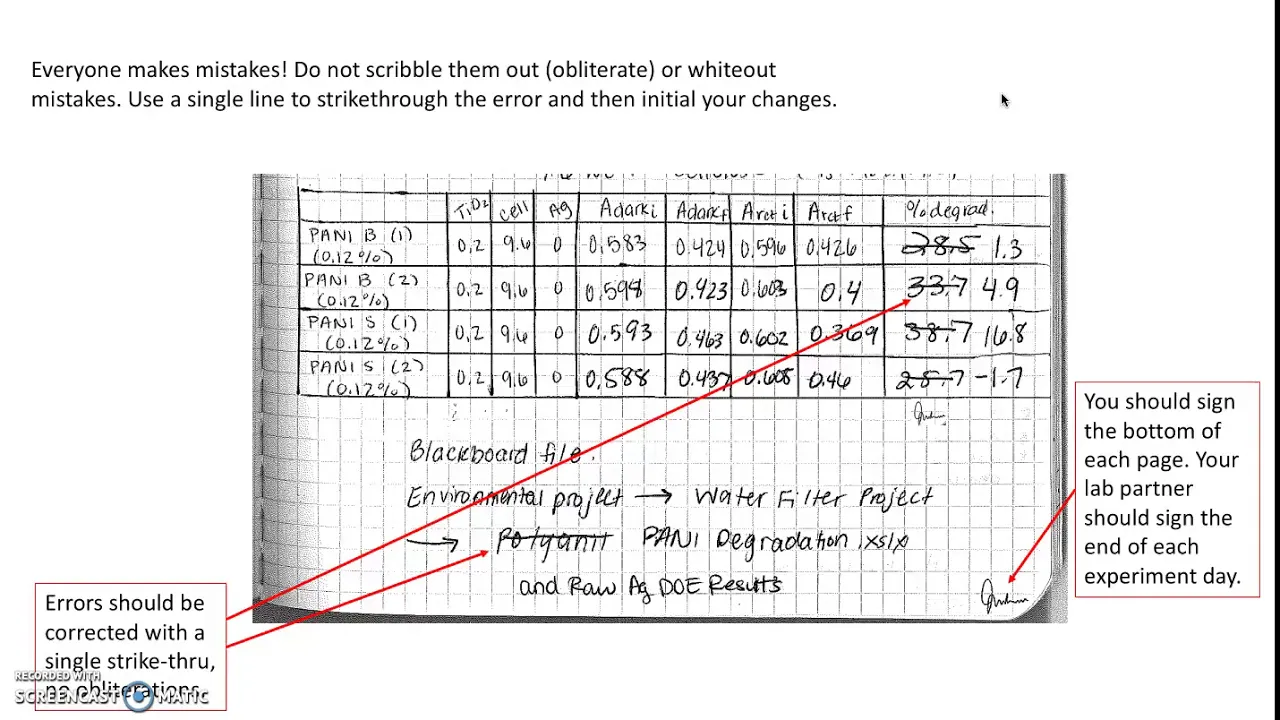 Everyone makes mistakes! Do not scribble them out (obliterate) or whiteout
mistakes. Use a single line to strikethrough the error and then initial your changes.
TiO2 Cell Ag Adarki Adarkf Arcti Arctf % degrad.
PANI B (1)
(0.12%) 0.2 9.6 0 0.583 0.424 0.596 0.426 28.5 1.3
PANI B (2)
(0.12%) 0.2 9.6 0 0.598 0.423 0.603 0.4 33.7 4.9
PANI S (1)
(0.12%) 0.2 9.6 0 0.593 0.463 0.602 0.369 38.7 16.8
PANI S (2)
(0.12%) 0.2 9.6 0 0.588 0.437 0.608 0.46 25.7 -1.7
Blackboard file.
Environmental project → Water Filter Project
→ Polyanil PANI Degradation .xslx
and Raw Ag DOE Results
You should sign
the bottom of
each page. Your
lab partner
should sign the
end of each
experiment day.
Errors should be
corrected with a
single strike-thru,
no obliterations.
RECORDED WITH
SCREENCAST MATIC